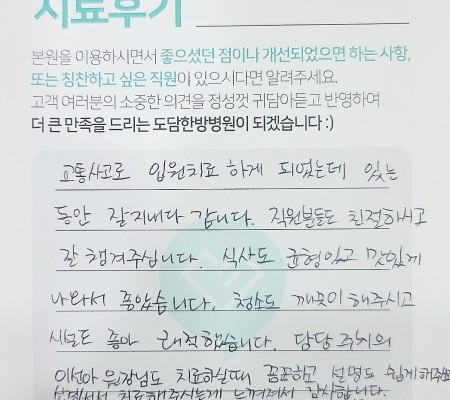 치료후기
본원을 이용하시면서 좋으셨던 점이나 개선되었으면 하는 사항,
또는 칭찬하고 싶은 직원이 있으시다면 알려주세요.
고객 여러분의 소중한 의견을 정성껏 귀담아듣고 반영하여
더 큰 만족을 드리는 도담한방병원이 되겠습니다 :)
교통사고로 입원치료 하게 되었는데 있는
동안 잘지내다 갑니다. 직원분들도 친절하시고
잘 챙겨주십니다. 식사도 균형있고 맛있게
나와서 좋았습니다. 청소도 깨끗이 해주시고
시설도 좋아 쾌적했습니다. 담당 주치의
이선아 원장님도 치료하실때 꼼꼼하고 설명도 쉽게 해주셔
치료해주시는게 느껴져서 감사합니다.